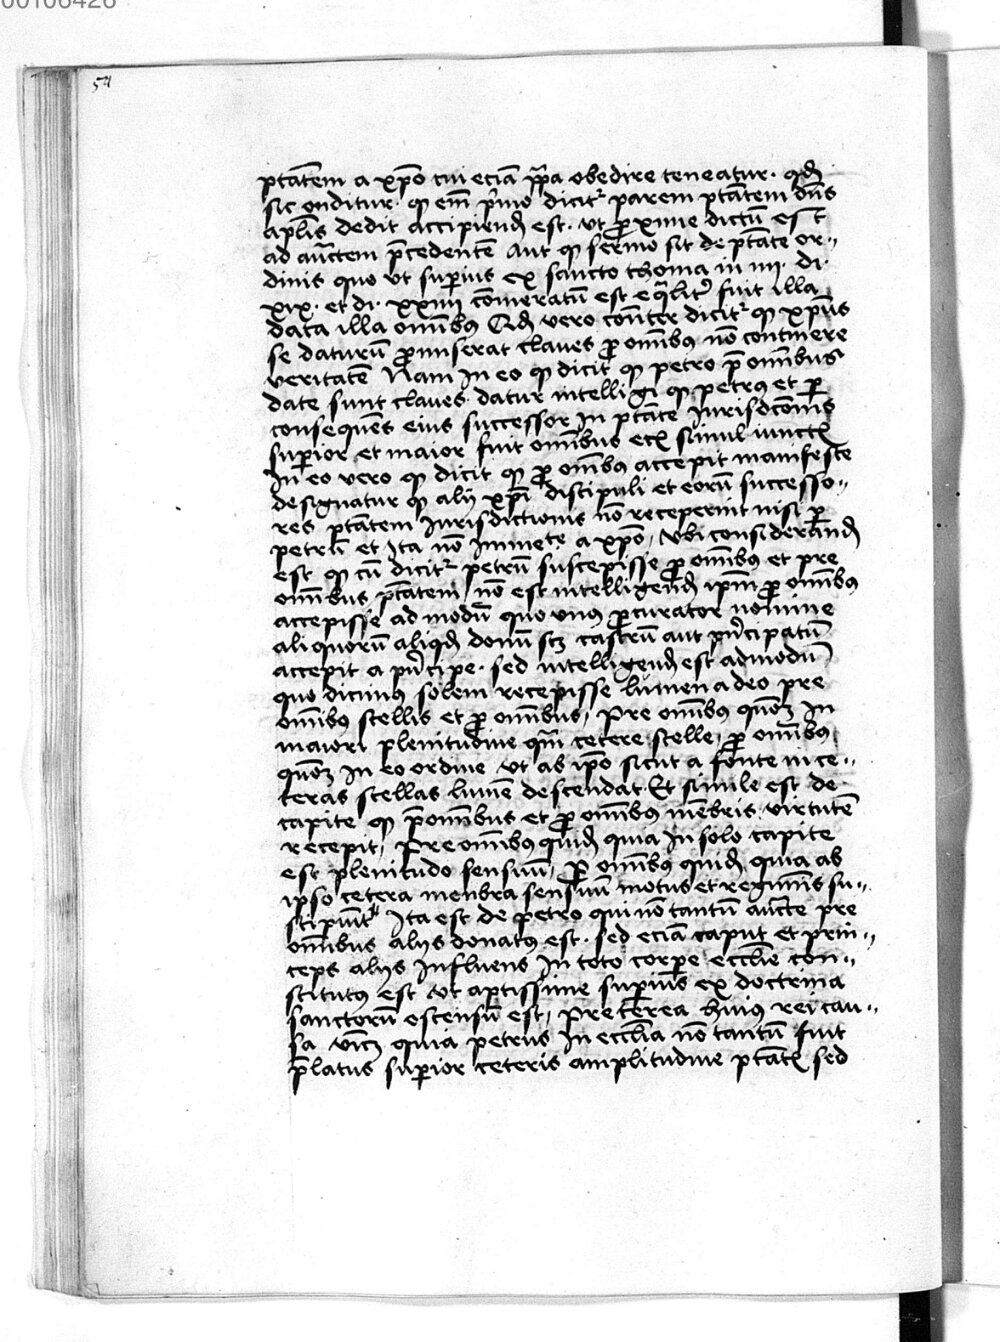 00106426
54
ptātem a xp̄o cui eciā pp̄a obedire teneatur. qd̄
sic onditur. qꝫ em̄ p̄mo dicitᷣ parem ptātem dn̄s
aplīs dedit accipiend̄ est. vt ꝓxime dictū est
ad auc̄tem p̄cedentē Aut qꝫ sermo sit de ptāte or-
dinis quo vt supius ex sancto thoma in iiij. di.
xix. et di. xxiiij cōmeratū est eq̄liter fuit illa
data illa omībus Qd̄ vero cōnter dicitᷣ qꝫ xp̄us
se daturū ꝓmiserat claves ꝓ omībꝰ nō continere
veritatē Nam in eo qꝫ dicit qꝫ petro p̄ omībus
date sunt claves datur intelligi qꝫ petrꝰ et ꝑ
consequēs eius successor in ptāte iurisdc̄onis
supior et maior fuit omībus etꝫ simul iunctꝫ
In eo vero qꝫ dicit qꝫ ꝓ omībꝰ accepit manifeste
designatur qꝫ alij xp̄i discipuli et eorū successo-
res ptātem iurisdictionis nō receperint nisi ꝑ
petrū et ita nō inmēte a xp̄o, vbi considerand̄
est qꝫ cū dicitᷣ petrū suscepisse ꝓ omībus et pre
omībus ptātem nō est intelligend̄ ip̄m ꝓ omībꝰ
accepisse ad modū quo vnꝰ ꝓcurator nomine
aliquorū aliqd̄ donū scꝫ castrū aut pn̄cipatū
accepit a pn̄cipe. sed intelligend̄ est ad modū
quo dicimꝰ solem recepisse lumen a deo pre
omībꝰ stellis et ꝓ omībus, Pre omībꝰ quōꝫ in
maiori plenitudine qᷓm cetere stelle, ꝓ omībꝰ
quōꝫ in eo ordine vt ab ip̄o sicut a fonte in ce-
teras stellas lumē descendat Et simile est de
capite qꝫ p̄ omībus et ꝓ omībus mēbris virtutē
recepit, Pre omībꝰ quid̄ quia in solo capite
est plenitudo sensuū, ꝓ omībꝰ quid̄ quia ab
ipso cetera menbra sensuū motus et regimīs su-
Ita est de petro qui nō tantū auc̄te pre
omībus alijs donatꝰ est. sed eciā caput et prin-
ceps alijs influens in toto corpe eccl̄ie con-
stitutꝰ est vt aptissime supius ex doctrina
sanctorū ostensū est, Preterea huius rei cau-
sa quia petrus in eccl̄ia nō tantū fuit
p̄latus supior ceteris amplitudine ptātꝫ sed